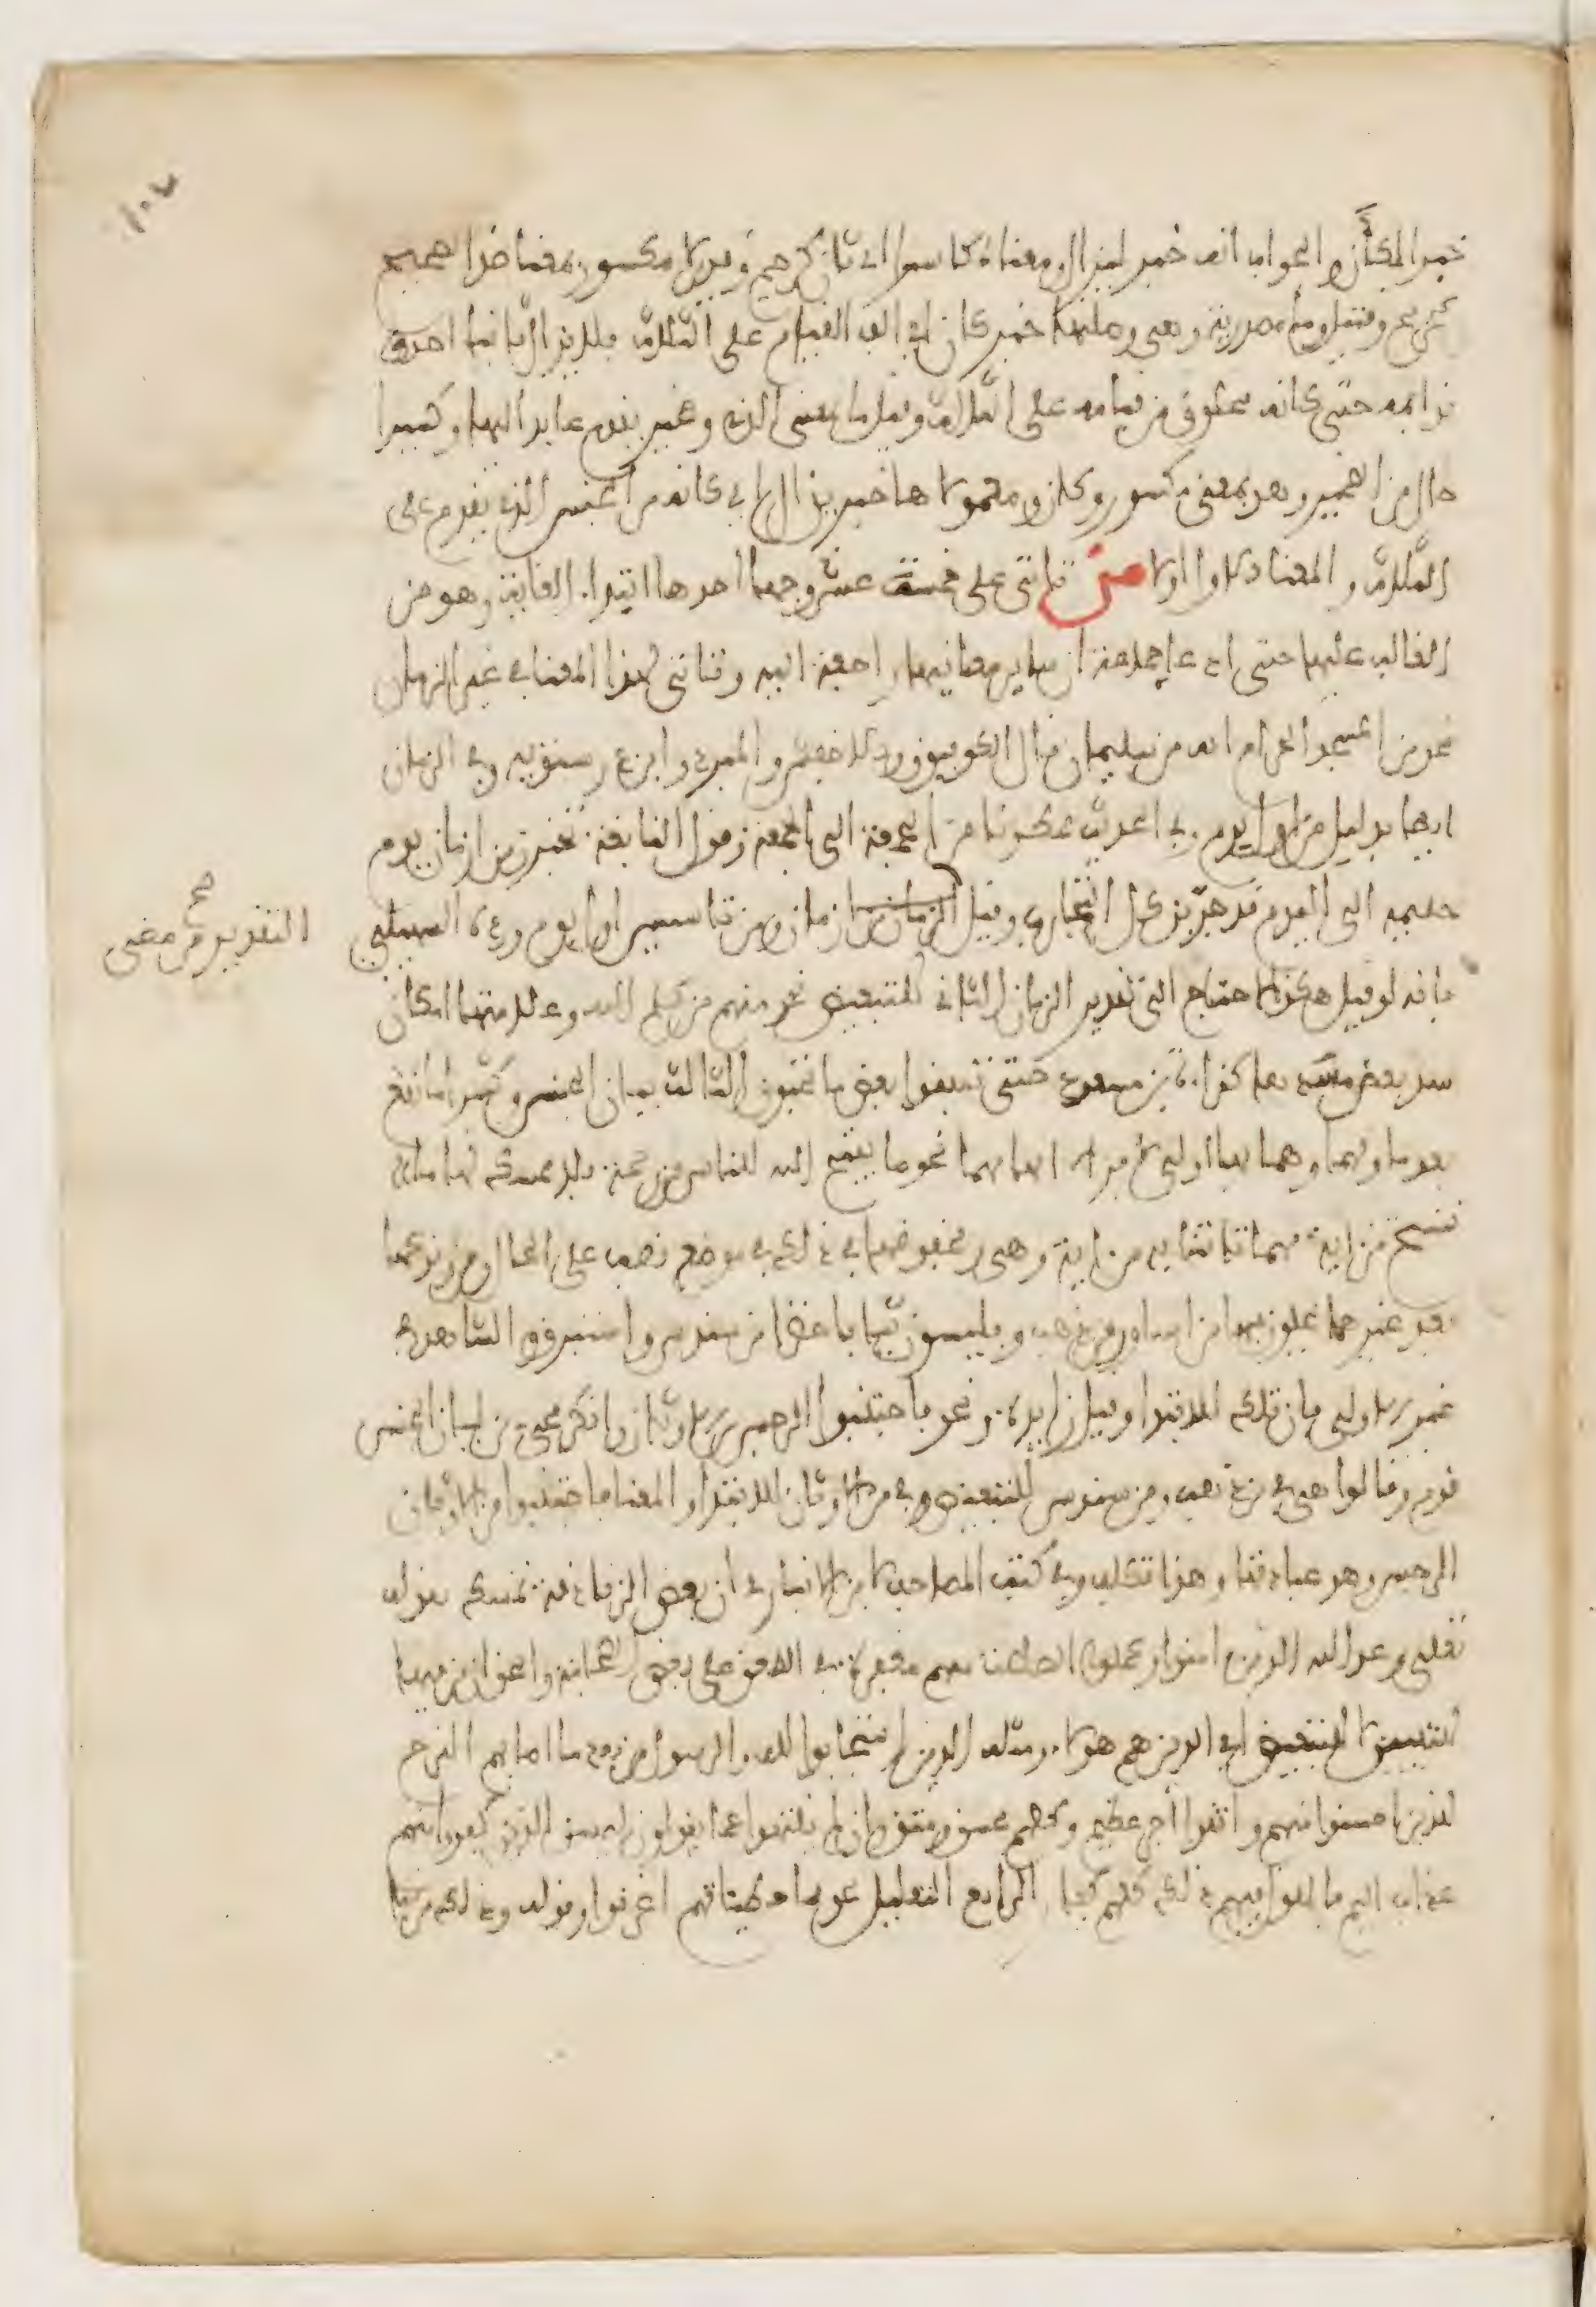 خبرا لكأن والجواب انه خبر ليزال ومعناه كاسرا اي ثان كرحيم وقدير لا مكسور بمعنا ضد الصحيح
كجريح وقتيل وما مصدرية وهي وصلتها خبر كان اي الف القيام على الثلاث فلم يزل ثانيا احدى
قوايمه حتى كانه مخلوق من قيامه على الثلاث وقيل ما بمعنى الذي وضمير يقوم عايد اليها وكسيرا
حال من الضمير وهو بمعنى مكسور وكان ومعمولاها خبر يزال اي كانه من الجنس الذي يقوم على
الثلاث والمعنا الاول اولا من تاتي على خمسة عشر وجها احدها ابتداء الغاية وهو من
الغالب عليها حتى ادعا جماعة ان ساير معانيها راجعة اليه وتاتي لهذا المعنا في غير الزمان
نحو من المسجد الحرام انه من سليمان قال الكوفيون والاخفش والمبرد وابن درستويه وفي الزمان
ايضا بدليل من اول يوم وفي الحديث فمطرنا من الجمعة الى الجمعة وقول النابغة تخيرن من ازمان يوم
حليمه الى اليوم قد جربن كل التجارب وقيل ازمان ومن تاسيس اول يوم ورده السهيلي
التقدير من مضي صح
بانه لو قيل هكذا لاحتاج الى تقدير الزمان الثاني التبعيض نحو منهم من كلم الله وعلامتها امكان
سد بعض مسدها كقراءة ابن مسعود حتى تنفقوا بعض ما تحبون الثالث بيان الجنس وكثيرا ما تقع
بعد ما ومهما وهما بها اولى لافراط ابهامهما نحو ما يفتح الله للناس من رحمة فلا ممسك لها ما
ننسخ من اية مهما تاتنا به من اية وهي ومخفوضها في ذلك في موضع نصب على الحال ومن وقوعها
بعد غيرهما يحلون فيها من اساور من ذهب ويلبسون ثيابا خضرا من سندس واستبرق الشاهد في
غير الاولى فان تلك للابتدا وقيل زايدة ونحو فاجتنبوا الرجس من الاوثان وانكر مجيء من لبيان الجنس
قوم وقالوا هي في من ذهب ومن سندس للتبعيض وفي من الاوثان للابتدا والمعنا فاجتنبوا من الاوثان
الرجس وهو عبادتها وهذا تكلف وفي كتب المصاحف لابن الانباري ان بعض الزنادقة تمسك بقوله
تعلى وعد الله الذين امنوا وعملوا الصالحات منهم مغفرة في الطعن على بعض الصحابة والحق ان من فيها
للتبيين لا للتبعيض اي الذين هم هؤلاء ومثله الذين استجابوا لله والرسول من بعد ما اصابهم القرح
للذين احسنوا منهم واتقوا اجر عظيم وكلهم محسن ومتق وان لم ينتهوا عما يقولون ليمسن الذين كفروا منهم
عذاب اليم فالمقول فيهم ذلك كلهم كفار الرابع التعليل نحو مما خطيئاتهم اغرقوا وقوله وذلك من نبا